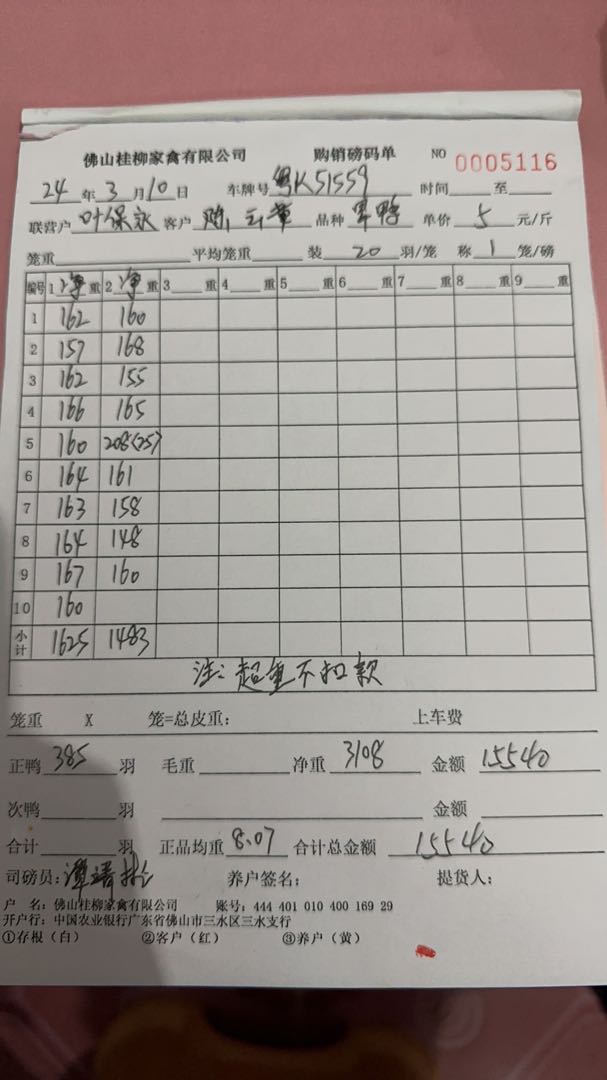 佛山桂柳家禽有限公司 购销磅码单 NO 0005116
24年3月10日 车牌号 粤K51559 时间 至
联营户 叶保永 客户 陈云章 品种 单价 5 元/斤
笼重 平均笼重 装 20 羽/笼 称 1 笼/磅
编号 1 净 重 2 净 重 3 重 4 重 5 重 6 重 7 重 8 重 9 重
1 162 160
2 157 168
3 162 155
4 166 165
5 160 208(25)
6 164 161
7 163 158
8 164 148
9 167 160
10 160
小计 1625 1483
注：超重不扣款
笼重 X 笼=总皮重： 上车费
正鸭 385 羽 毛重 净重 3108 金额 15540
次鸭 羽 金额
合计 羽 正品均重 8.07 合计总金额 15540
司磅员：谭 养户签名： 提货人：
户 名：佛山桂柳家禽有限公司 账号：444 401 010 400 169 29
开户行：中国农业银行广东省佛山市三水区三水支行
①存根（白） ②客户（红） ③养户（黄）